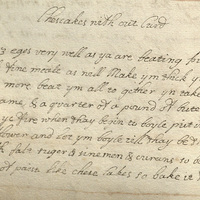 Chescakes with out Curd
3 eges very well as ya are beating
fine meale as well Make ym thick
more beat ym all to gether yn take
ame, & a quarter of a pound of butter
ye fire when thay boyle put
ower and let ym boyle till thay be
salt suger & sinemon & currans so
of past like chese Cakes so bake it